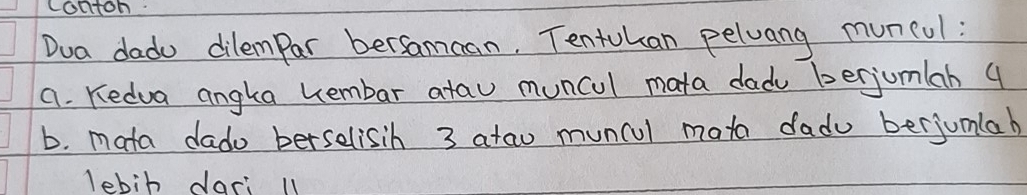 Contoh.
Dua dadu dilempar bersamaan. Tentukan peluang muncul :
a. Kedua angka kembar atau muncul mata dadu berjumlah 4
b. mata dadu berselisih 3 atau muncul mata dadu berjumlah
lebih dari 11